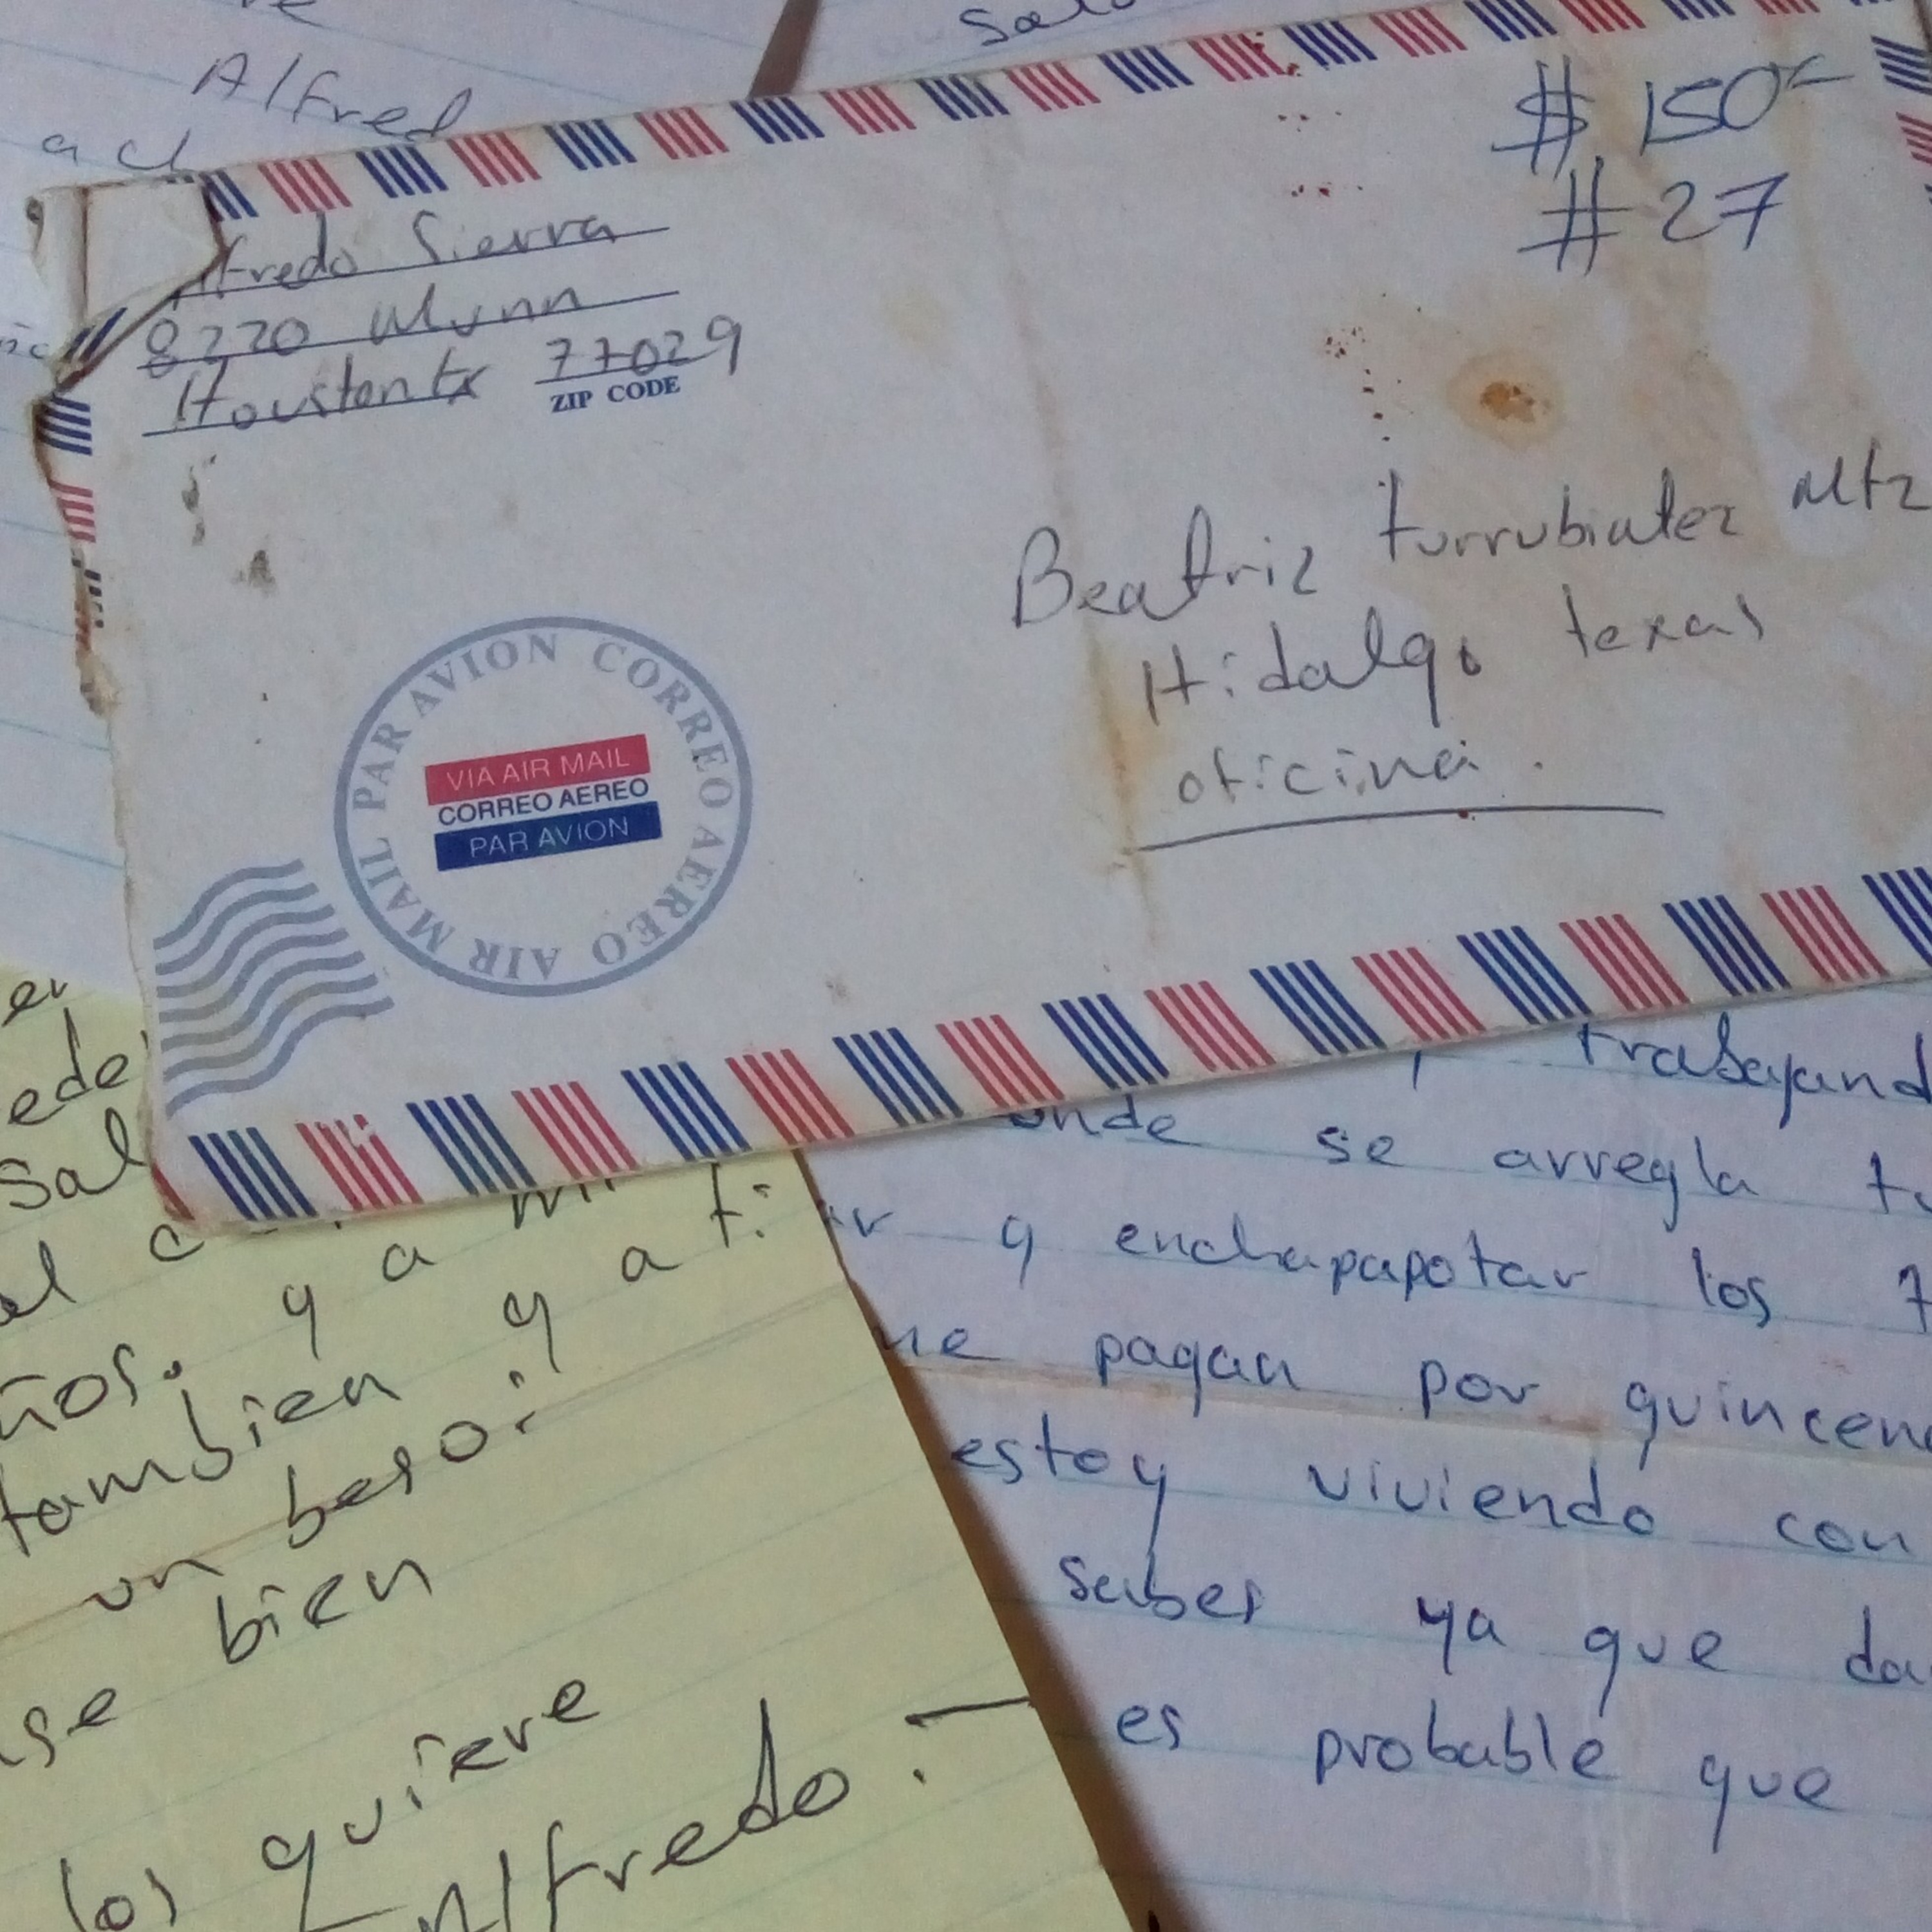 Alfred
Alfredo Sierra
8220 Mynn
Houston tx 77029
ZIP CODE
$ 150
# 27
Beatriz turrubiatez Mtz
Hidalgo texas
oficina.
AIR MAIL PAR AVION CORREO AEREO
VIA AIR MAIL
CORREO AEREO
PAR AVION
y a ti
ños. y a
tambien y
un beso
bien
se
los quiere
Alfredo.
trabajand
onde se arregla
y enchapapotar los
me pagan por quincena
estoy viviendo con
sabes ya que da
es probable que